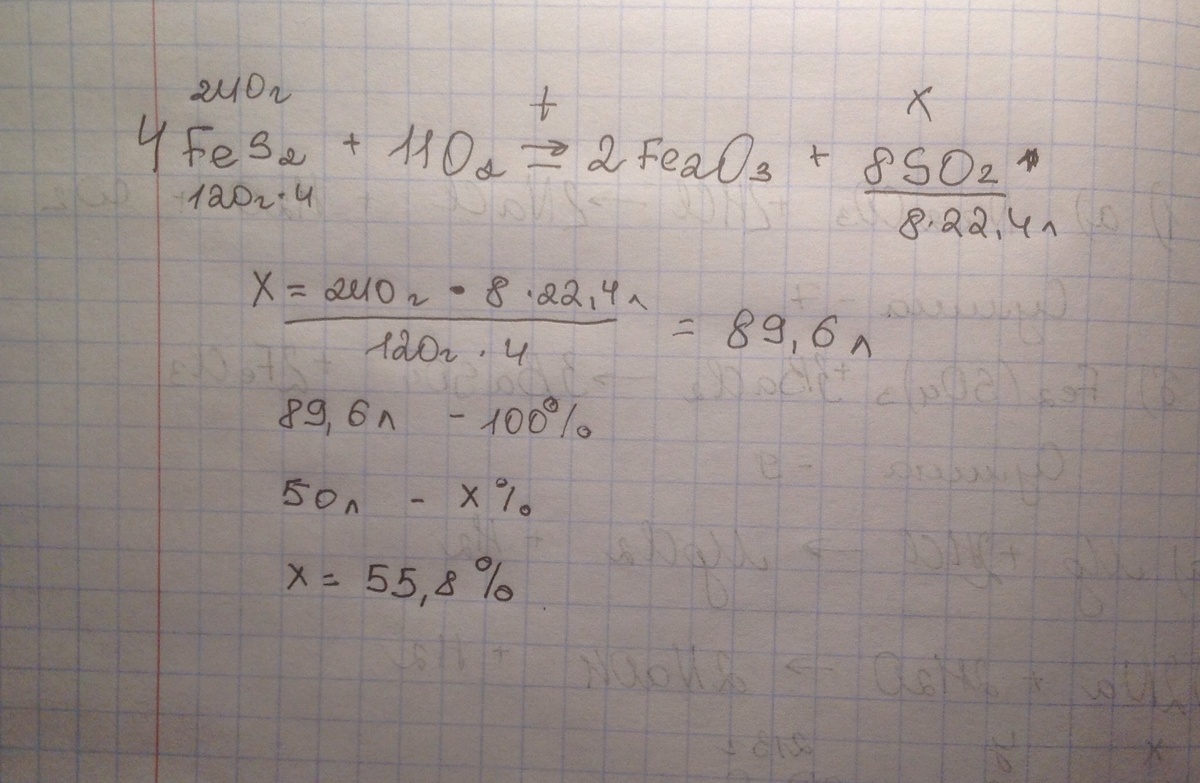 240г t X
4 FeS₂ + 11O₂ ⇒ 2Fe₂O₃ + 8SO₂
120г·4 8·22,4л
X = 240г · 8·22,4л
120г·4
= 89,6 л
89,6л - 100%
50л - x%
x = 55,8%